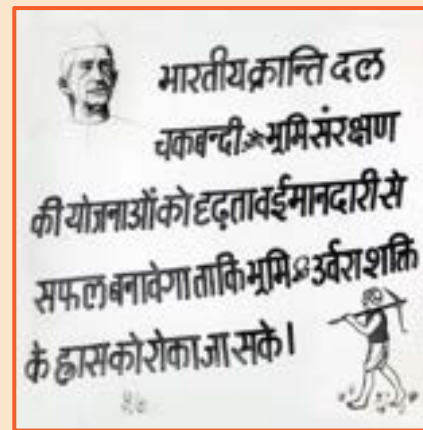 भारतीय क्रान्ति दल
चकबन्दी भूमि संरक्षण
की योजनाओं को दृढ़ता व ईमानदारी से
सफल बनावेगा ताकि भूमि उर्वरा शक्ति
के ह्रास को रोका जा सके।